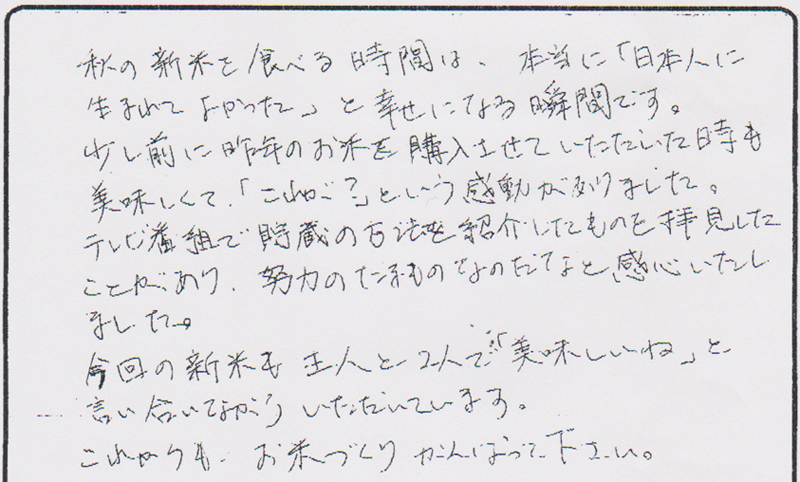 秋の新米を食べる時間は、本当に「日本人に
生まれてよかった」と幸せになる瞬間です。
少し前に昨年のお米を購入させていただいた時も
美味しくて、「これが?」という感動がありました。
テレビ番組で貯蔵の方法を紹介したものを拝見した
ことがあり、努力のたまものなのだなと感心いたし
ました。
今回の新米も主人と2人で「美味しいね」と
言い合いながらいただいています。
これからも、お米づくりがんばって下さい。